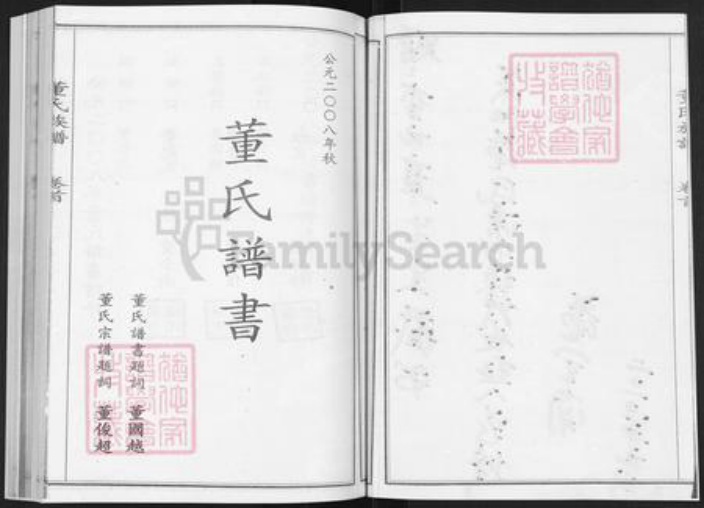 公元二〇〇八年秋
董氏譜書
董氏譜書題詞 董國越
董氏宗譜題詞 董俊超
董氏族譜 卷首
FamilySearch
猶他家
譜學會
收藏
猶他家
譜學會
收藏
董氏族譜 卷首